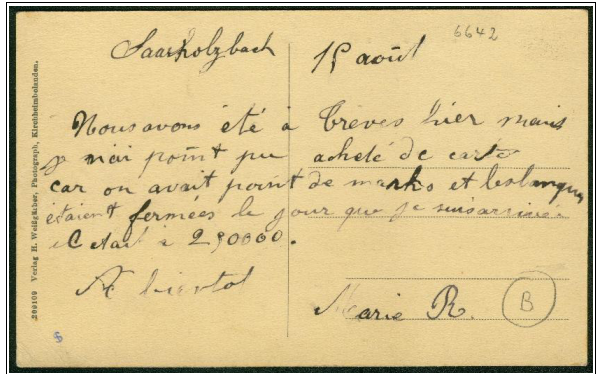 6642
Saarholzbach 15 août
Nous avons été à Trèves hier mais
je n'ai point pu acheté de carte
car on avait point de marks et les banques
étaient fermées le jour que je suis arrivée
il était à 290000.
A bientot
Marie R.
B
299109 Verlag H. Weißgäber, Photograph, Kirchheimbolanden.